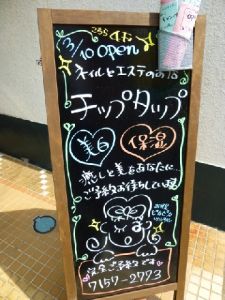 3/10 open
ネイルとエステのお店
チップタップ
美白
保湿
癒しと美をあなたに…
ご予約お待ちしてい〼
完全ご予約です
7157-2773